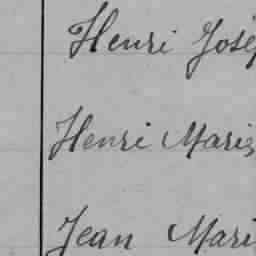 Henri José
Henri Marie
Jean Mari